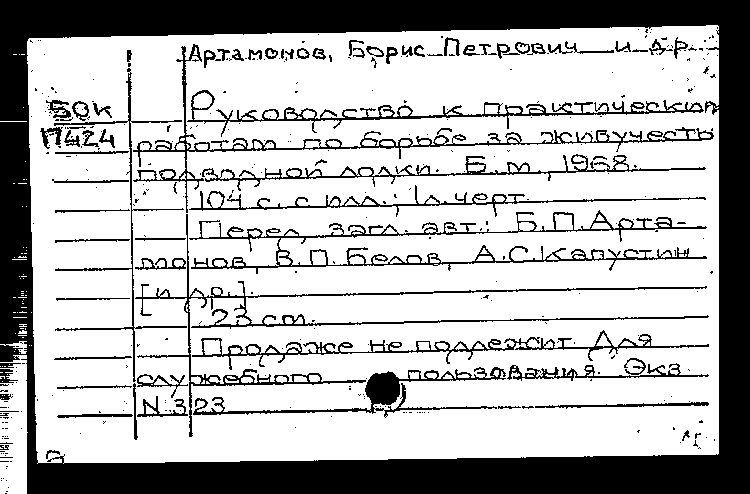 Артамонов, Борис Петрович и др
50к
П424
Руководство к практическим
работам по борьбе за живучесть
подводной лодки. Б.м., 1968.
104 с. с илл.; 1л. черт.
Перед загл. авт.: Б.П.Арта-
монов, В.П.Белов, А.С.Капустин
[и др.].
23 см.
Продаже не подлежит Для
служебного пользования. Экз
N 323